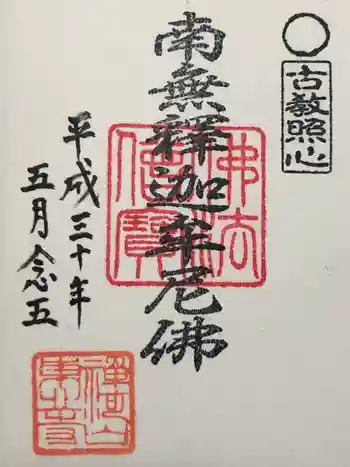 古教照心
南無釋迦牟尼佛
佛法僧寳
平成三十年
五月念五